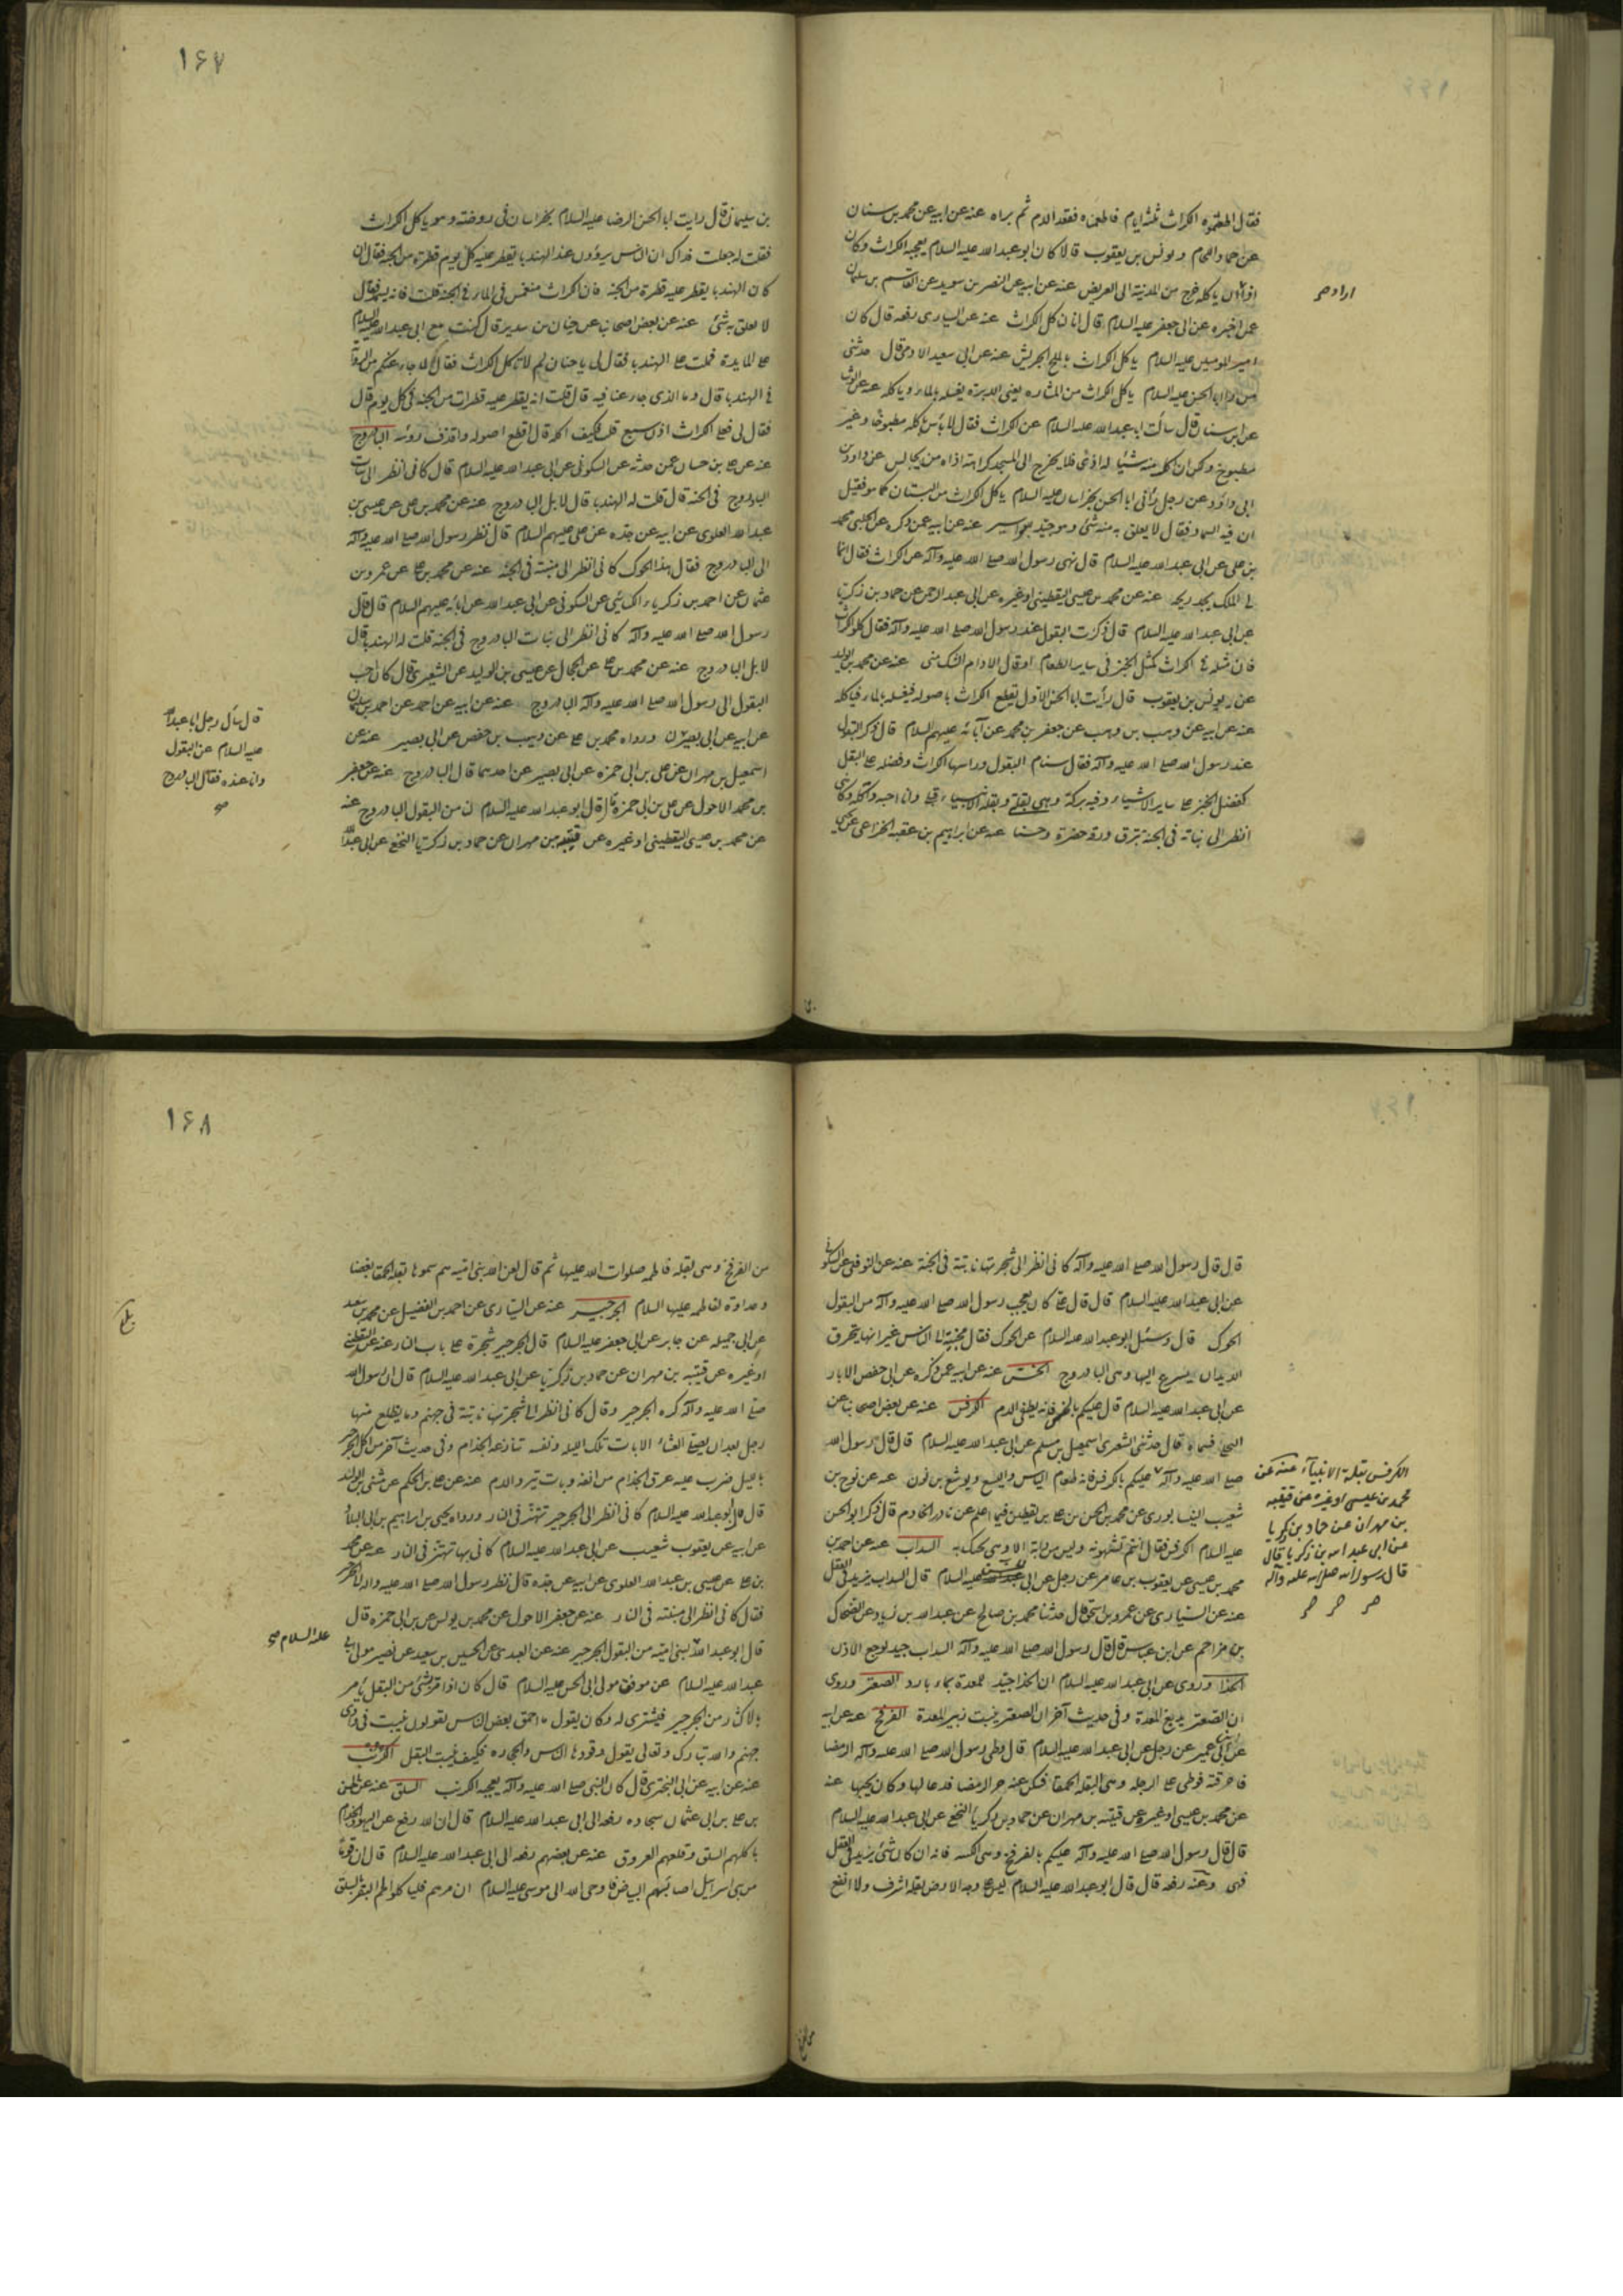 فقال اطعموه الكراث ثلثة ايام فاطعمناه فقعد الدم ثم برا ه عنه عن ابيه عن محمد بن سنان
عن حماد اللحام و يونس بن يعقوب قالا كان ابو عبد الله عليه السلام يعجبه الكراث وكان
اذا اراد ان ياكله خرج من المدينة الى العريض عنه عن ابيه عن النضر بن سويد عن القاسم بن سليمان
عمن اخبره عن ابى جعفر عليه السلام قال انا لناكل الكراث عنه عن السيارى رفعه قال كان
امير المومنين عليه السلام ياكل الكراث بالملح الجريش عنه عن ابى سعيد الادمى قال حدثنى
من راى ابا الحسن عليه السلام ياكل الكراث من المشاره يعنى الدبرة يغسله بالماء وياكله عنه عن الوشا
عن ابن سنان قال سألت ابا عبد الله عليه السلام عن الكراث فقال لا بأس بأكله مطبوخا وغير
مطبوخ ولكن ان اكل منه شيئا له اذى فلا يخرج الى المسجد كراهة اذاه من يجالس عنه عن داود بن
ابى داود عن رجل رأى ابا الحسن بخراسان عليه السلام ياكل الكراث من البستان كما هو فقيل
ان فيه السماد فقال لا يعلق به منه شئ وهو جيد للبواسير عنه عن ابيه عمن ذكره عن الحلبى محمد
بن على عن ابى عبد الله عليه السلام قال نهى رسول الله صلى الله عليه وآله عن الكراث فقال انما
الملك يجد ريحه عنه عن محمد بن عيسى اليقطينى او غيره عن ابى عبد الرحمن عن حماد بن زكريا
عن ابى عبد الله عليه السلام قال ذكرت البقول عند رسول الله صلى الله عليه وآله فقال كلوا الكراث
فان مثله كمثل الخبز فى ساير الطعام او قال الادام الشك منى عنه عن محمد بن الوليد
عن يونس بن يعقوب قال رأيت ابا الحسن الاول يقطع الكراث باصوله فيغسله بالماء فياكله
عنه عن ابيه عن وهب بن وهب عن جعفر بن محمد عن آبائه عليهم السلام قال ذكر البقول
عند رسول الله صلى الله عليه وآله فقال سنام البقول وراسها الكراث وفضله على البقل
كفضل الخبز على ساير الاشياء وفيه بركة وهى بقلتى وبقلة الانبياء قبلى وانا احبه وآكله وكانى
انظر الى نباته فى الجنة تبرق ورقه خضرة وحسنا عنه عن ابراهيم بن عقبه الخزاعى عن يحيى
اراد صح
١۶٧
بن سليمان قال رايت ابا الحسن الرضا عليه السلام بخراسان فى روضته وهو ياكل الكراث
فقلت له جعلت فداك ان الناس يروون عن الهندبا يقطر عليه كل يوم قطرة من الجنه فقال ان
كان الهندبا يقطر عليه قطرة من الجنه فان الكراث منغمس فى الماء فى الجنه قلت فانه يسمد فقال
لا يعلق به شئ عنه عن بعض اصحابه عن حنان بن سدير قال كنت مع ابى عبد الله عليه السلام
على المايدة فملت على الهندبا فقال لى يا حنان لم لا تاكل الكراث فقلت لما جاء عنكم من الرواية
فى الهندبا قال وما الذى جاء عنا فيه قال قلت انه يقطر عليه قطرات من الجنه فى كل يوم قال
فقال لى فعلى الكراث اذن سبع قلت فكيف اكله قال اقطع اصوله واقذف رؤسه الباذروج
عنه عن على بن حسان عمن حدثه عن السكونى عن ابى عبد الله عليه السلام قال كانى انظر الى نبات
الباذروج فى الجنة قال قلت له الهندبا قال لا بل الباذروج عنه عن محمد بن على عن عيسى بن
عبد الله العلوى عن ابيه عن جده عن على عليهم السلام قال نظر رسول الله صلى الله عليه وآله
الى الباذروج فقال هذا الحوك كانى انظر الى منبته فى الجنة عنه عن محمد بن على عن عمرو بن
عثمان عن احمد بن زكريا الكسائى عن السكونى عن ابى عبد الله عن ابائه عليهم السلام قال قال
رسول الله صلى الله عليه وآله كانى انظر الى نبات الباذروج فى الجنه قلت له الهندبا قال
لا بل الباذروج عنه عن محمد بن على عن الحجال عن عيسى بن الوليد عن الشعيرى قال كان احب
البقول الى رسول الله صلى الله عليه وآله الباذروج عنه عن ابيه عن احمد عن احمد بن سليمان
عن ابيه عن ابى بصير ورواه محمد بن على عن وهيب بن حفص عن ابى بصير عنه عن
اسمعيل بن مهران عن على بن ابى حمزه عن ابى بصير عن احدهما قال الباذروج عنه عن جعفر
بن محمد الاحول عن على بن ابى حمزه قال قال ابو عبد الله عليه السلام لنا من البقول الباذروج عنه
عن محمد بن عيسى اليقطينى او غيره عن قتيبه بن مهران عن حماد بن زكريا النخعى عن ابى عبد الله
قال سأل رجل ابا عبد الله
عليه السلام عن البقول
وانا عنده فقال الباذروج
صح
قال قال رسول الله صلى الله عليه وآله كانى انظر الى شجرتها نابتة فى الجنة عنه عن النوفلى عن السكونى
عن ابى عبد الله عليه السلام قال قال على كان يعجب رسول الله صلى الله عليه وآله من البقول
الحوك قال وسئل ابو عبد الله عليه السلام عن الحوك فقال محبته الى الناس غير انها يتخرق
الديدان يسرع اليها وهى الباذروج الخس عنه عن ابيه عمن ذكره عن ابى حفص الابار
عن ابى عبد الله عليه السلام قال عليكم بالخس فانه يطفى الدم الكرفس عنه عن بعض اصحابنا عن
قال حدثنى الشعيرى اسمعيل بن مسلم عن ابى عبد الله عليه السلام قال قال رسول الله
صلى الله عليه وآله عليكم بالكرفس فانه طعام الياس واليسع ويوشع بن نون عنه عن نوح بن
شعيب النيسابورى عن محمد بن الحسن بن على بن يقطين فيما اعلم عن نادر الخادم قال ذكر ابو الحسن
عليه السلام الكرفس فقال انتم تشتهونه وليس من دابة الا وهى تحتك به السداب عنه عن احمد بن
محمد بن عيسى عن يعقوب بن عامر عن رجل عن ابى الحسن عليه السلام قال السداب يزيد فى العقل
عنه عن السيارى عن عمرو بن اسحق قال حدثنا محمد بن صالح عن عبد الله بن زياد عن الضحاك
بن مزاحم عن ابن عباس قال قال رسول الله صلى الله عليه وآله السداب جيد لوجع الاذن
الحزا وروى عن ابى عبد الله عليه السلام ان الحزا جيد للمعدة بماء بارد الصعتر وروى
ان الصعتر يدبغ المعدة وفى حديث آخر ان الصعتر ينبت زئبر المعدة الفرفخ عنه عن ابيه
عن ابن ابى عمير عن رجل عن ابى عبد الله عليه السلام قال وطى رسول الله صلى الله عليه وآله الرمضا
فاحرقته فوطى على الرجله وهى البقله الحمقا فسكن عنه حر الرمضا فدعا لها وكان يحبها عنه
عن محمد بن عيسى او غيره عن قتيبه بن مهران عن حماد بن زكريا النخعى عن ابى عبد الله عليه السلام
قال قال رسول الله صلى الله عليه وآله عليكم بالفرفخ وهى المكيسه فانه ان كان شئ يزيد فى العقل
فهى وعنه رفعه قال قال ابو عبد الله عليه السلام ليس على وجه الارض بقلة اشرف ولا انفع
الكرفس بقلة الانبياء عنه عن
محمد بن عيسى او غيره عن قتيبه
بن مهران عن حماد بن زكريا
عن ابى عبد الله بن زكريا قال
قال رسول الله صلى الله عليه وآله
صح صح صح
١۶٨
من الفرفخ وهى بقلة فاطمه صلوات الله عليها ثم قال لعن الله بنى اميه هم سموها بقلة الحمقا بغضا
وعداوة لفاطمه عليها السلام الجرجير عنه عن السيارى عن احمد بن الفضيل عن محمد بن سعيد
عن ابى جميله عن جابر عن ابى جعفر عليه السلام قال الجرجير شجرة على باب النار عنه عن اليقطينى
او غيره عن قتيبه بن مهران عن حماد بن زكريا عن ابى عبد الله عليه السلام قال ان رسول الله
صلى الله عليه وآله كره الجرجير وقال كانى انظر الى شجرتها نابتة فى جهنم وما يتضلع منها
رجل بعد ان يصلى العشاء الا بات تلك الليله ونفسه تنازعه الجذام وفى حديث آخر من اكل الجرجير
بالليل ضرب عليه عرق الجذام من انفه وبات ينزف الدم عنه عن على بن الحكم عن مثنى بن الوليد
قال قال ابو عبد الله عليه السلام كانى انظر الى الجرجير تهتز فى النار ورواه يحيى بن ابراهيم بن ابى البلاد
عن ابيه عن يعقوب شعيب عن ابى عبد الله عليه السلام كانى بها تهتز فى النار عنه عن محمد
بن على عن عيسى بن عبد الله العلوى عن ابيه عن جده قال نظر رسول الله صلى الله عليه وآله الى الجرجير
فقال كانى انظر الى منبته فى النار عنه عن جعفر الاحول عن محمد بن يونس عن على بن ابى حمزه قال
قال ابو عبد الله لبنى اميه من البقول الجرجير عنه عن العبدى عن الحسين بن سعيد عن نصير مولى ابى
عبد الله عليه السلام عن موفق مولى ابى الحسن عليه السلام قال كان اذا امر بشئ من البقل يأمر
بالاكثار من الجرجير فيشترى له وكان يقول ما احمق بعض الناس يقولون ينبت فى وادى
جهنم والله تبارك وتعالى يقول وقودها الناس والحجاره فكيف ينبت البقل الكرنب
عنه عن ابيه عن ابى البخترى قال كان النبى صلى الله عليه وآله يعجبه الكرنب السلق عنه عن على بن الحسن
بن على بن ابى عثمان سجاده رفعه الى ابى عبد الله عليه السلام قال ان الله رفع عن اليهود الجذام
باكلهم السلق وقلعهم العروق عنه عن بعضهم رفعه الى ابى عبد الله عليه السلام قال ان قوما
من بنى اسرائيل اصابهم البياض فاوحى الله الى موسى عليه السلام ان مرهم فلياكلوا لحم البقر بالسلق
عليه السلام صح
بلغ